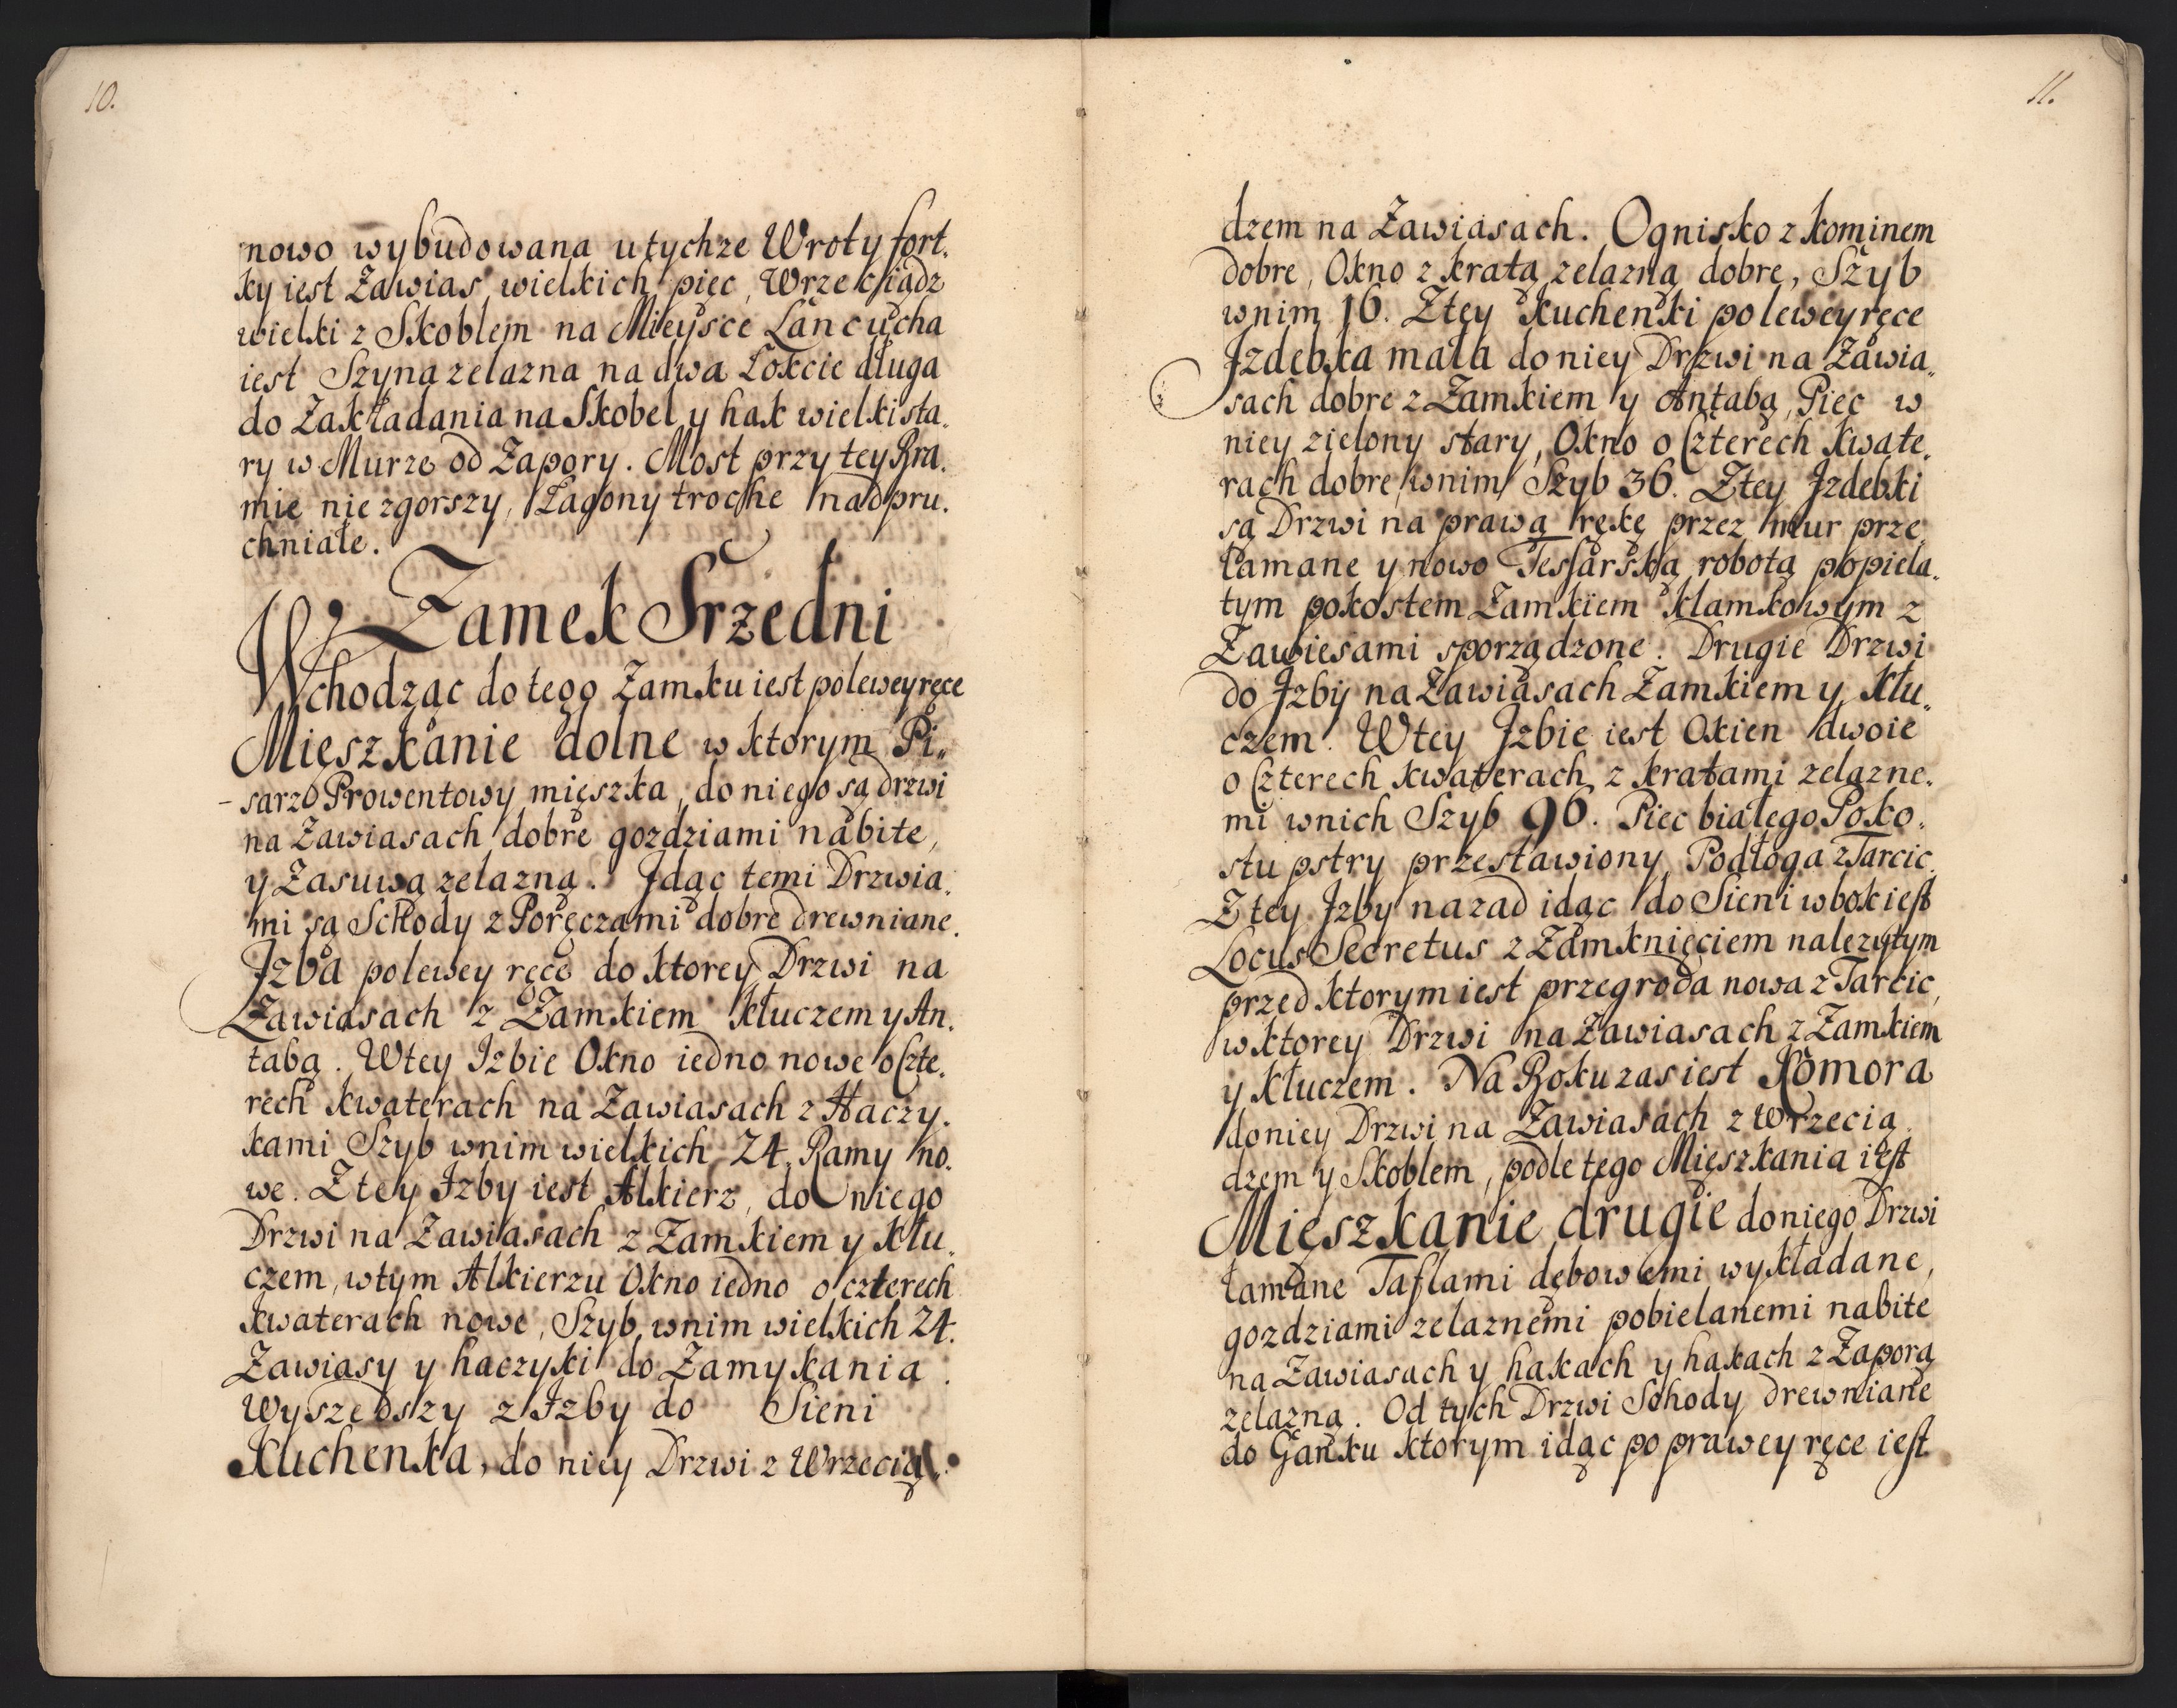 10.
nowo wybudowana u tychze Wroty fort.
ky iest Zawias wielkich pięc, Wrzekciądz
wielki z Skoblem na Mieysce Łancucha
iest Szyna zelazna na dwa Łokcie długa
do Zakładania na Skobel y hak wielki sta.
ry w Murze od Zapory. Most przy tey Bra.
mie nie zgorszy, Łagony troche nadpru.
chniałe.
Zamek Srzedni
Wchodząc do tego Zamku iest po lewey ręce
Mięszkanie dolne w ktorym Pi„
-sarz Prowentowy mięszka, do niego są drzwi
na Zawiasach dobre gozdziami nabite,
y Zasuwą zelazną. Idąc temi Drzwia.
mi są Schody z Poręczami dobre drewniane.
Izba po lewey ręce do ktorey Drzwi na
Zawiasach z Zamkiem kłuczem y An.
tabą. W tey Izbie Okno iedno nowe o Czte.
rech kwaterach na Zawiasach z Haczy.
kami Szyb w nim wielkich 24. Ramy no.
we. Z tey Izby iest Alkierz, do niego
Drzwi na Zawiasach z Zamkiem y Kłu„
czem, w tym Alkierzu Okno iedno o czterech
kwaterach nowe, Szyb w nim wielkich 24.
Zawiasy y haczyki do Zamykania.
Wyszedszy z Izby do Sieni
Kuchenka, do niey Drzwi z Wrzecią„
11.
dzem na Zawiasach. Ognisko z kominem
dobre, Okno z kratą zelazną dobre, Szyb
w nim 16. Z tey Kuchenki po lewey ręce
Izdebka mała do niey Drzwi na Zawia„
sach dobre z Zamkiem y Antabą, Piec w
niey zielony stary, Okno o Czterech kwate.
rach dobre w nim Szyb 36. Z tey Izdebki
są Drzwi na prawą rękę przez mur prze
łamane y nowo Tesarską robotą popiela.
tym pokostem Zamkiem klamkowym z
Zawiesami sporządzone. Drugie Drzwi
do Izby na Zawiasach Zamkiem y Kłu„
czem. W tey Izbie iest Okien dwoie
o Czterech kwaterach z kratami zelazne.
mi w nich Szyb 96. Piec białego Poko.
stu pstry przestawiony, Podłoga z Tarcic.
Z tey Izby nazad idąc do Sieni w bok iest
Locus Secretus z Zamknięciem nalezytym
przed ktorym iest przegroda nowa z Tarcic,
w ktorey Drzwi na Zawiasach z Zamkiem
y kłuczem. Na Boku zas iest Komora
do niey Drzwi na Zawiasach z Wrzecią.
dzem y Skoblem, podle tego Mięszkania iest
Mięszkanie drugie do niego Drzwi
łamane Taflami dębowemi wykładane,
gozdziami zelaznemi pobielanemi nabite
na Zawiasach y hakach y hakach z Zaporą
zelazną. Od tych Drzwi Schody drewniane
do Ganku ktorym idąc po prawey ręce iest